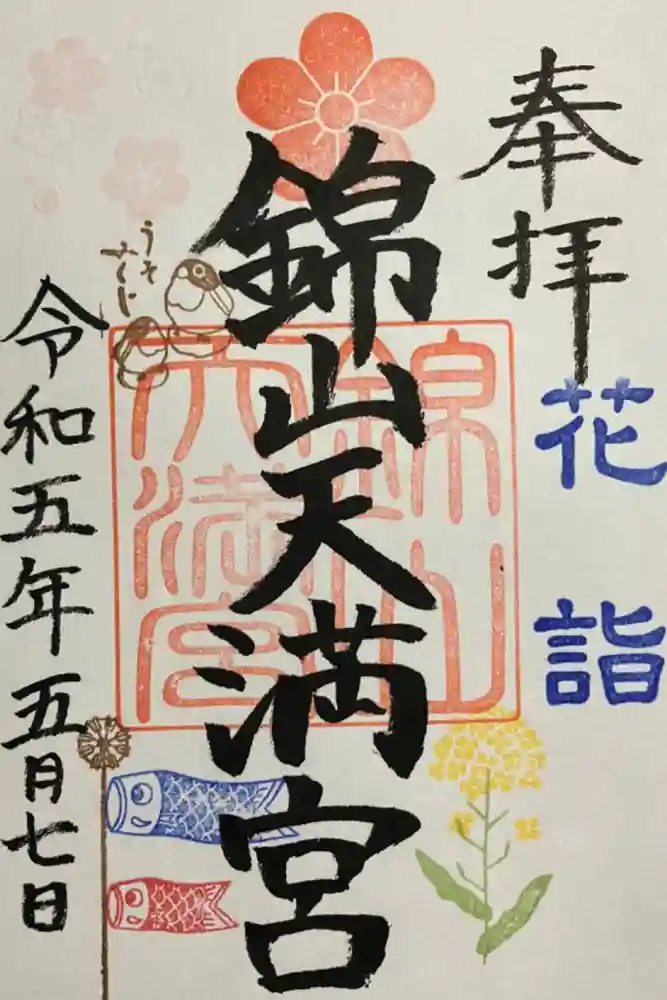 奉拝
花詣
錦山天満宮
錦山
天満宮
うそ
みくじ
令和五年五月七日